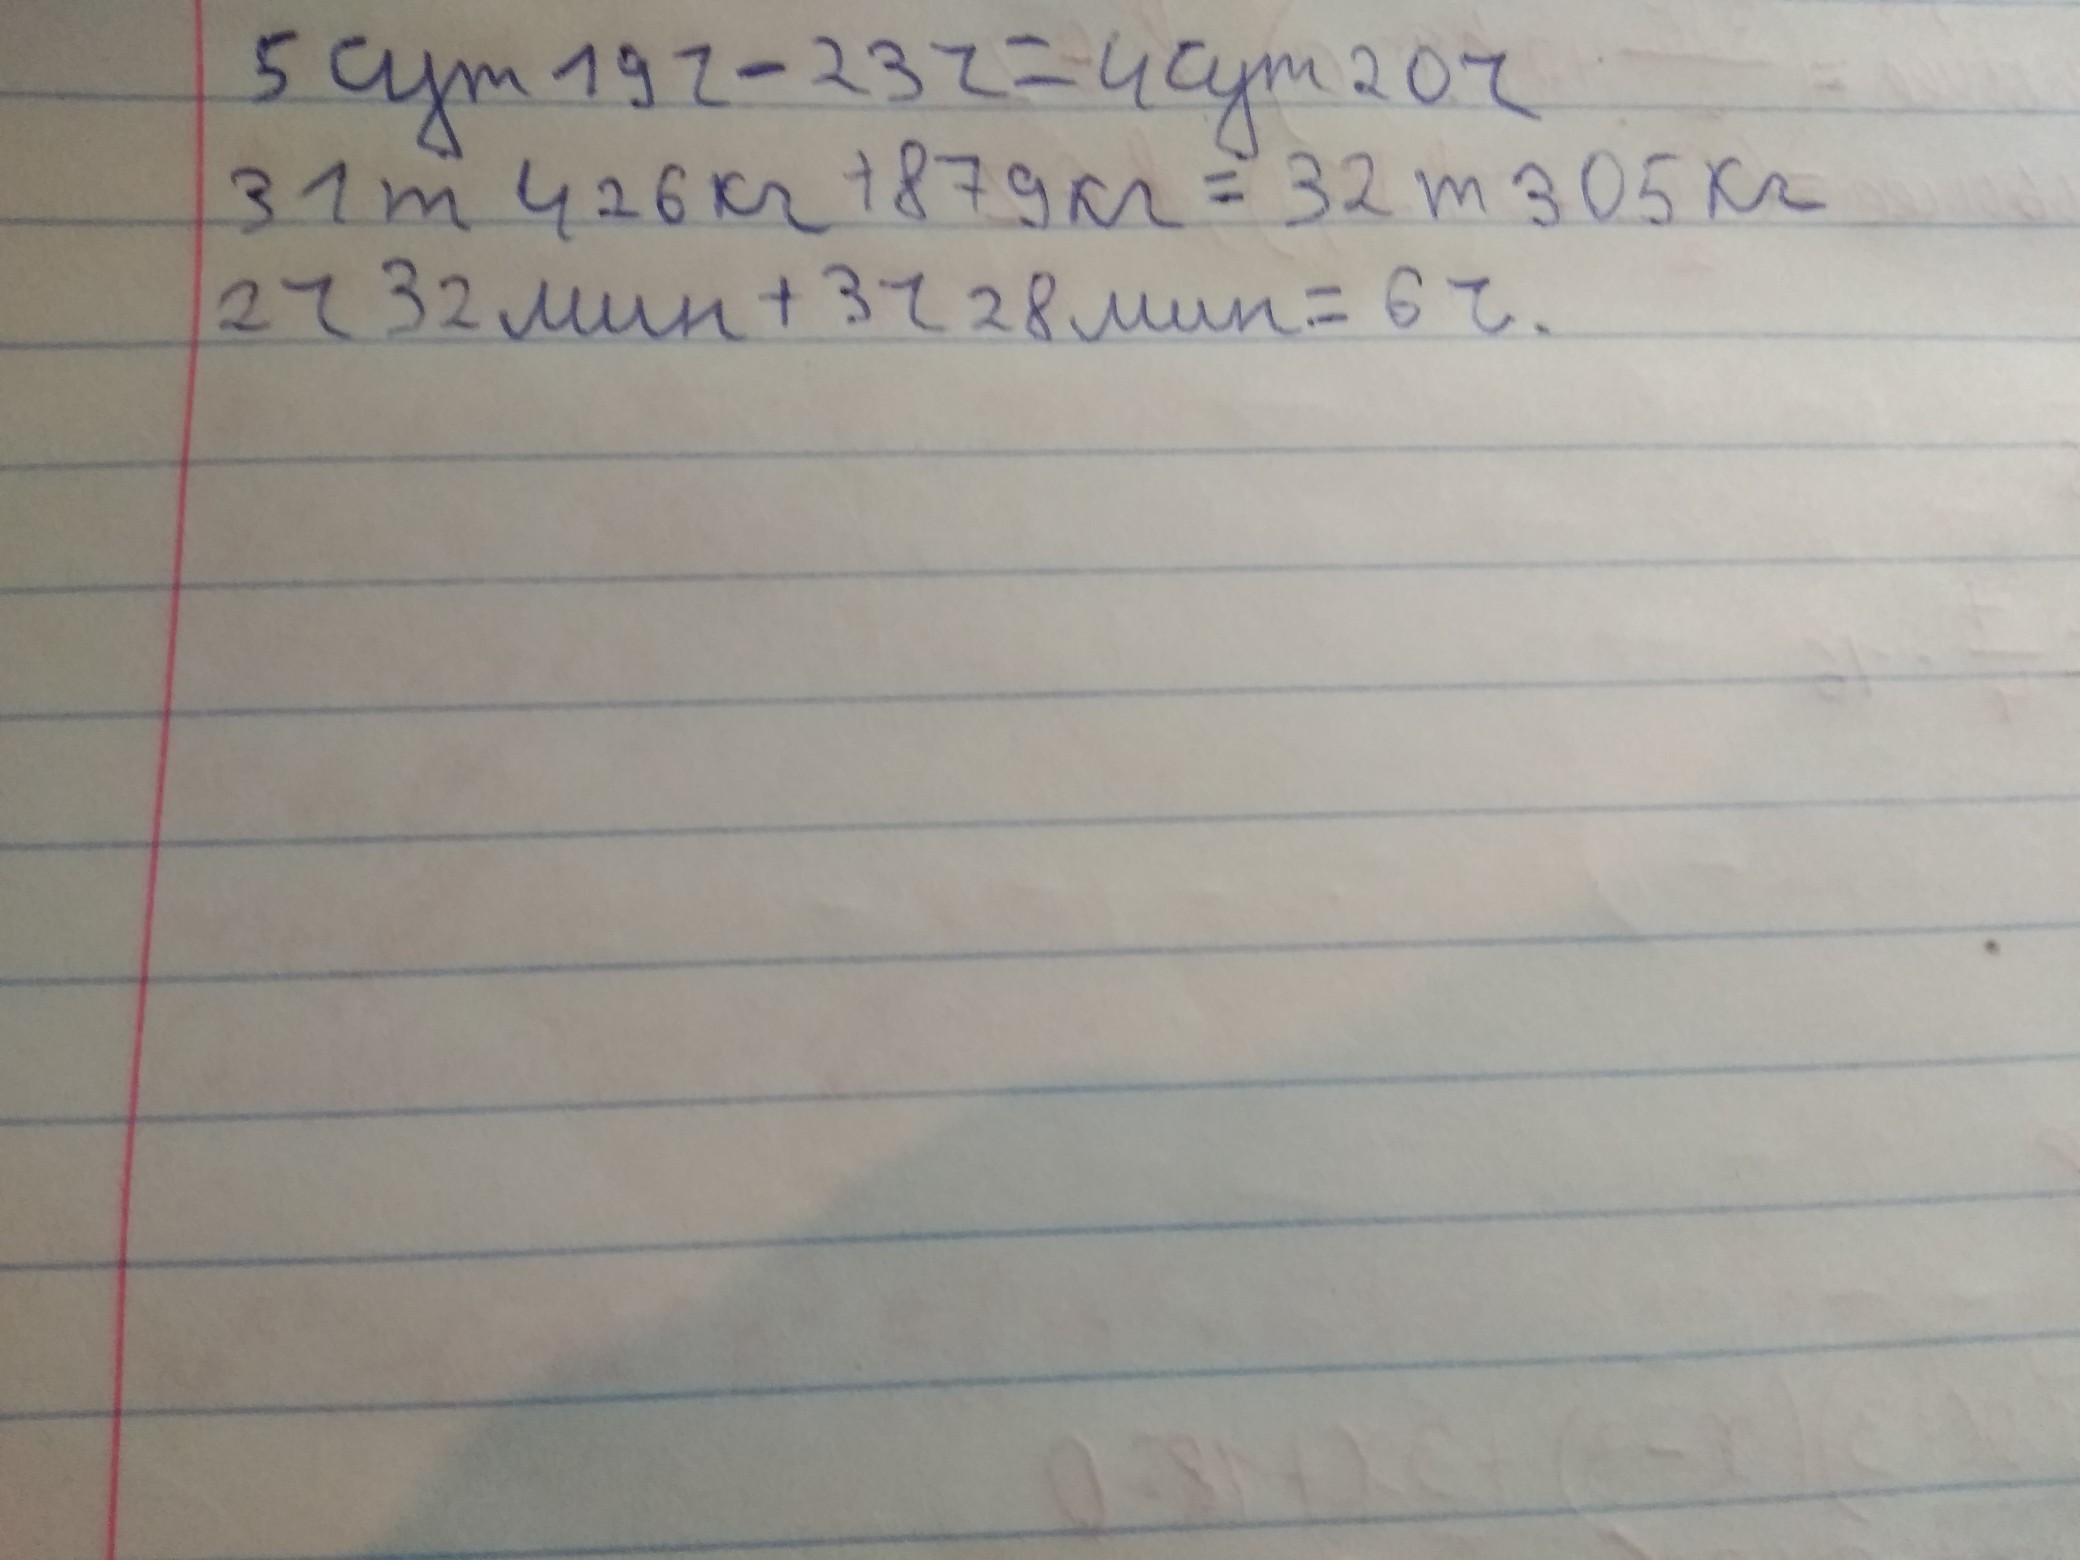 5 сут 19 ч - 23 ч = 4 сут 20 ч
31 т 426 кг + 879 кг = 32 т 305 кг
2 ч 32 мин + 3 ч 28 мин = 6 ч.